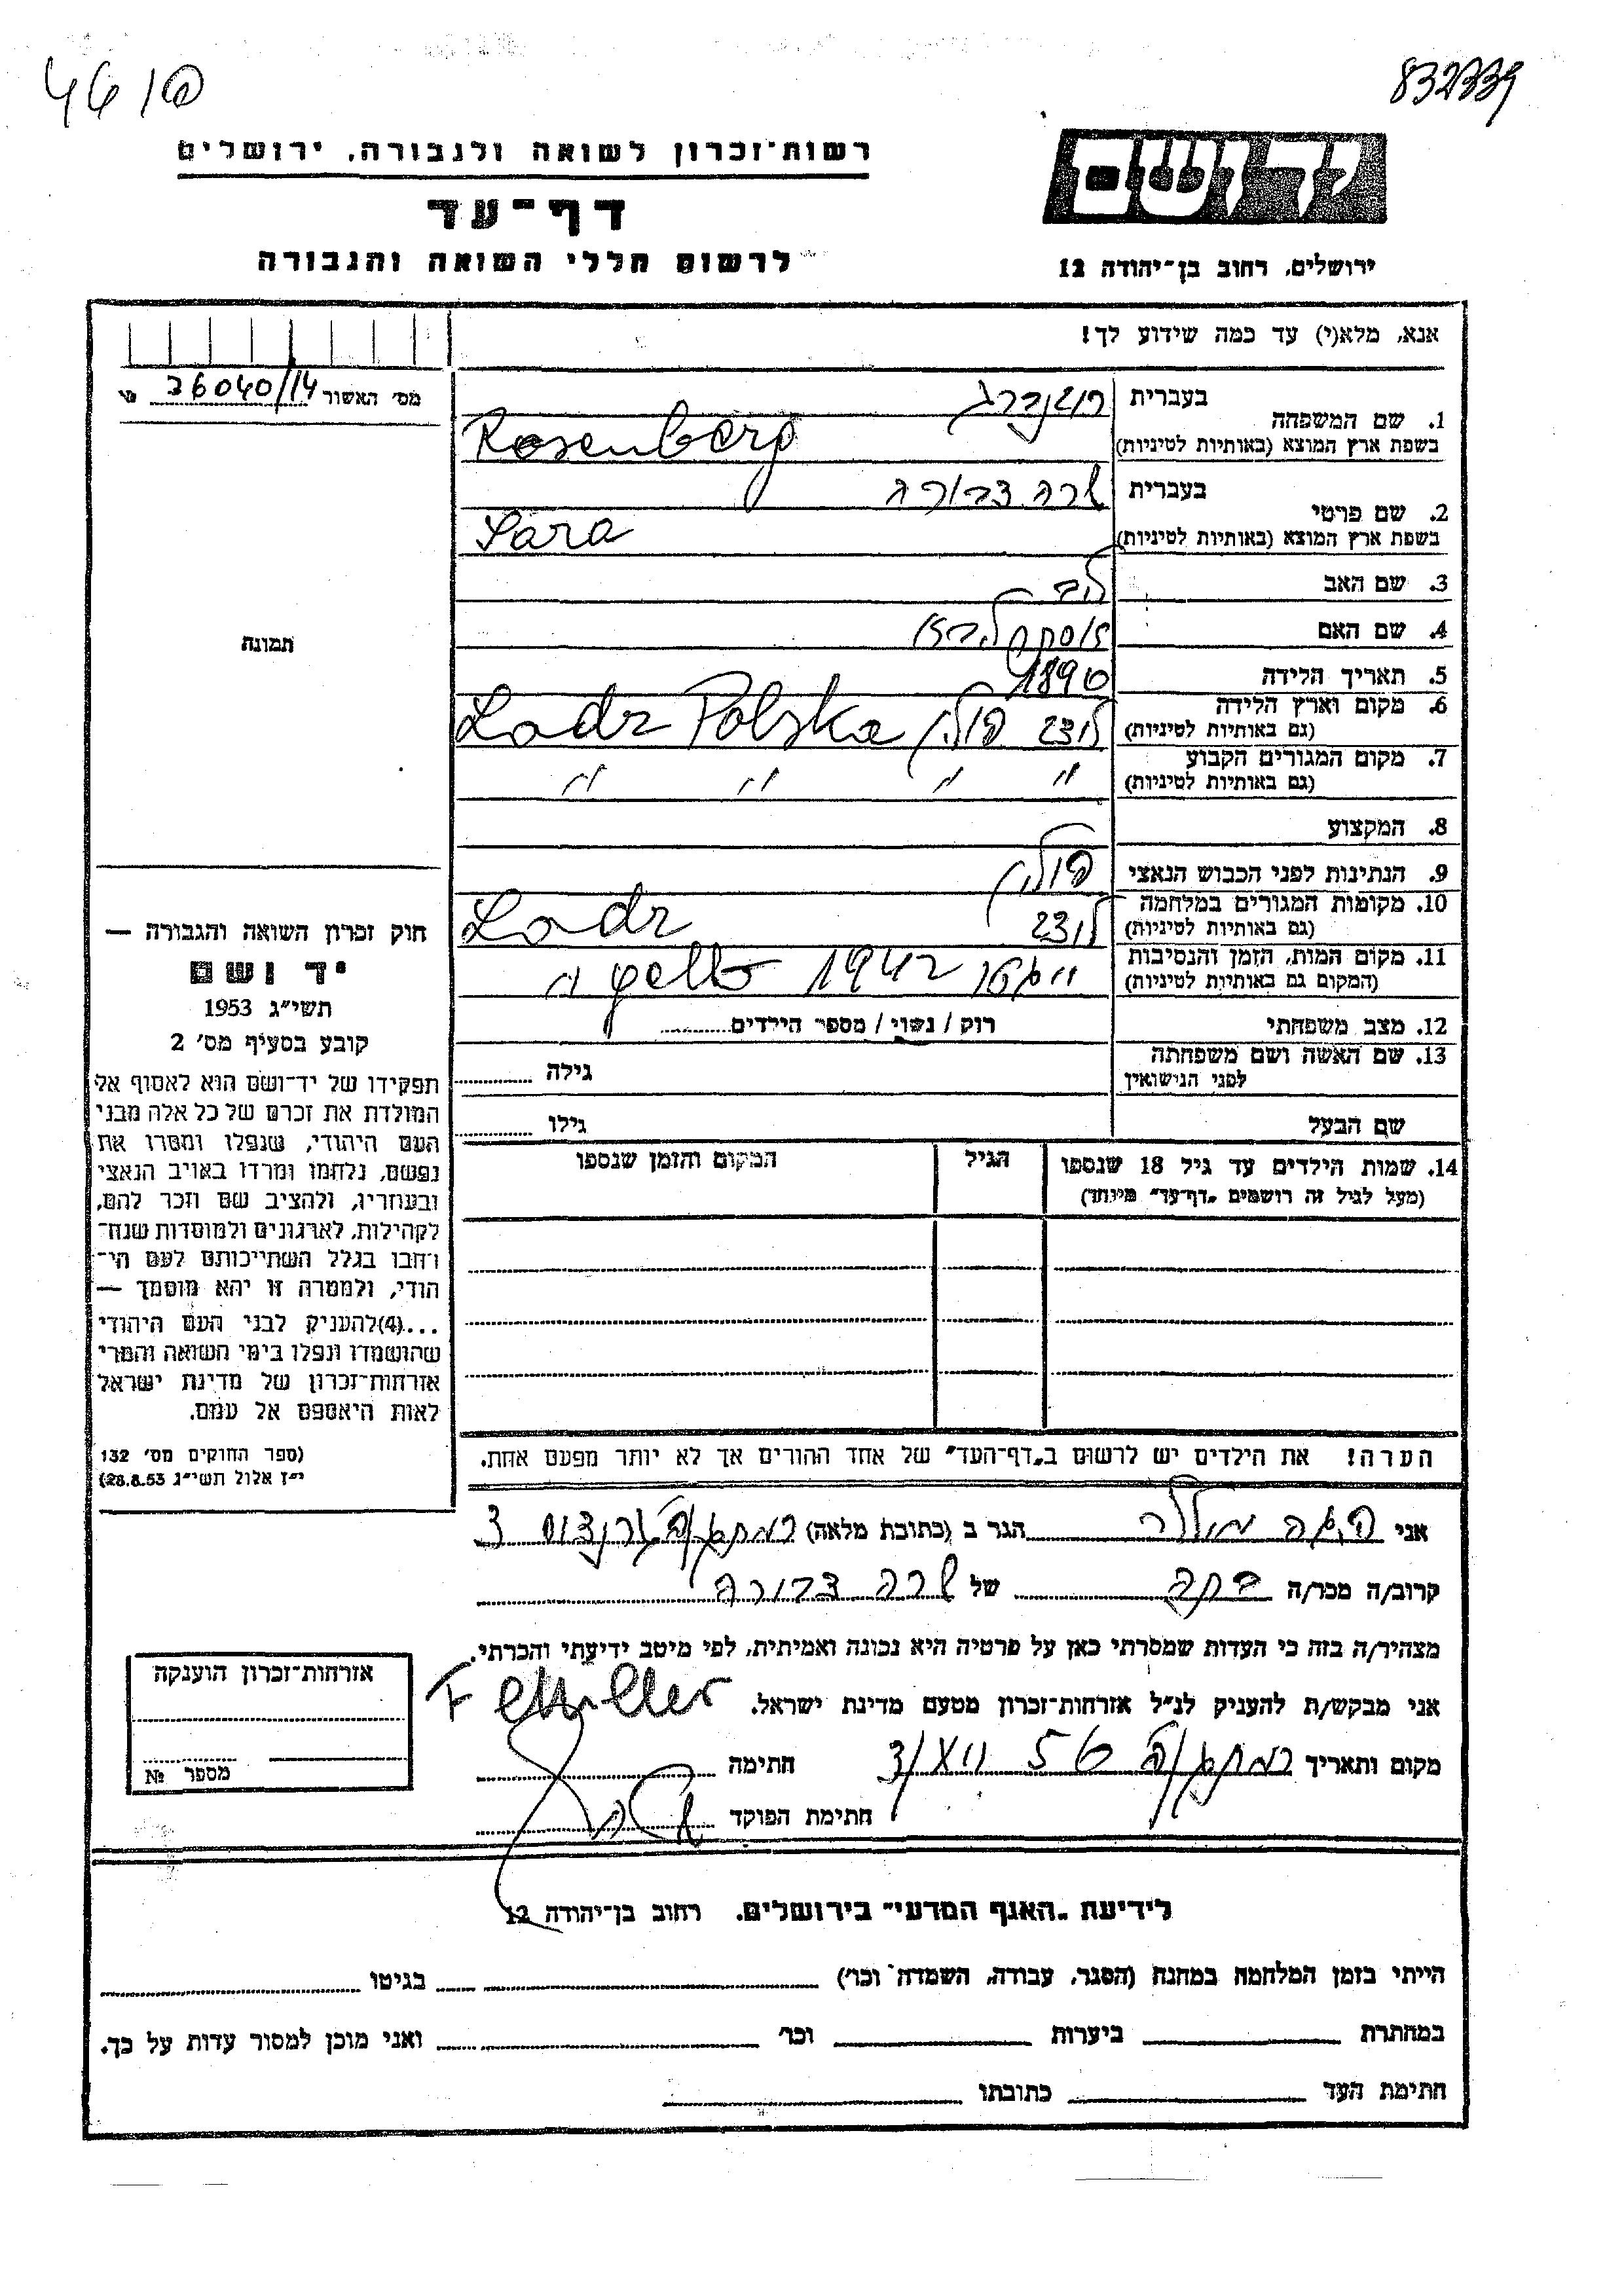 832339
יד ושם
ירושלים, רחוב בן־יהודה 12
רשות־זכרון לשואה ולגבורה, ירושלים
דף־עד
לרשום חללי השואה והגבורה
אנא, מלא(י) עד כמה שידוע לך!
מס׳ האשור 36040/14
1. שם המשפחה
בעברית רוזנברג
בשפת ארץ המוצא (באותיות לטיניות) Rosenberg
2. שם פרטי
בעברית שרה דבורה
בשפת ארץ המוצא (באותיות לטיניות) Sara
3. שם האב לב
4. שם האם
5. תאריך הלידה 1890
6. מקום וארץ הלידה (גם באותיות לטיניות) לודז פולין Lodz Polska
7. מקום המגורים הקבוע (גם באותיות לטיניות) " " " "
8. המקצוע
9. הנתינות לפני הכבוש הנאצי פולין
10. מקומות המגורים במלחמה (גם באותיות לטיניות) לודז Lodz
11. מקום המות, הזמן והנסיבות (המקום גם באותיות לטיניות) 1942
12. מצב משפחתי רוק / נשוי / מספר הילדים
13. שם האשה ושם משפחתה לפני הנישואין גילה
שם הבעל גילו
14. שמות הילדים עד גיל 18 שנספו הגיל המקום והזמן שנספו
(מעל לגיל זה רושמים „דף־עד״ מיוחד)
הערה! את הילדים יש לרשום ב„דף־העד״ של אחד ההורים אך לא יותר מפעם אחת.
תמונה
חוק זכרון השואה והגבורה —
יד ושם
תשי״ג 1953
קובע בסעיף מס׳ 2
תפקידו של יד־ושם הוא לאסוף אל
המולדת את זכרם של כל אלה מבני
העם היהודי, שנפלו ומסרו את
נפשם, נלחמו ומרדו באויב הנאצי
ובעוזריו, ולהציב שם וזכר להם,
לקהילות, לארגונים ולמוסדות שנח־
רחבו בגלל השתייכותם לעם הי־
הודי, ולמטרה זו יהא מוסמך —
...(4)להעניק לבני העם היהודי
שהושמדו ונפלו בימי השואה והמרי
אזרחות־זכרון של מדינת ישראל
לאות היאספם אל עמם.
(ספר החוקים מס׳ 132
י״ז אלול תשי״ג 28.8.53)
אני פלה מולר הגר ב (כתובת מלאה) רמת גן
קרוב/ה מכר/ה בתה של שרה דבורה
מצהיר/ה בזה כי העדות שמסרתי כאן על פרטיה היא נכונה ואמיתית, לפי מיטב ידיעתי והכרתי.
אני מבקש/ת להעניק לנ״ל אזרחות־זכרון מטעם מדינת ישראל.
מקום ותאריך רמת גן חתימה
חתימת הפוקד
אזרחות־זכרון הוענקה
מספר №
לידיעת „האגף המדעי״ בירושלים. רחוב בן־יהודה 12
הייתי בזמן המלחמה במחנה (הסגר, עבודה, השמדה וכר׳) בגיטו
במחתרת ביערות וכר׳ ואני מוכן למסור עדות על כך.
חתימת העד כתובתו